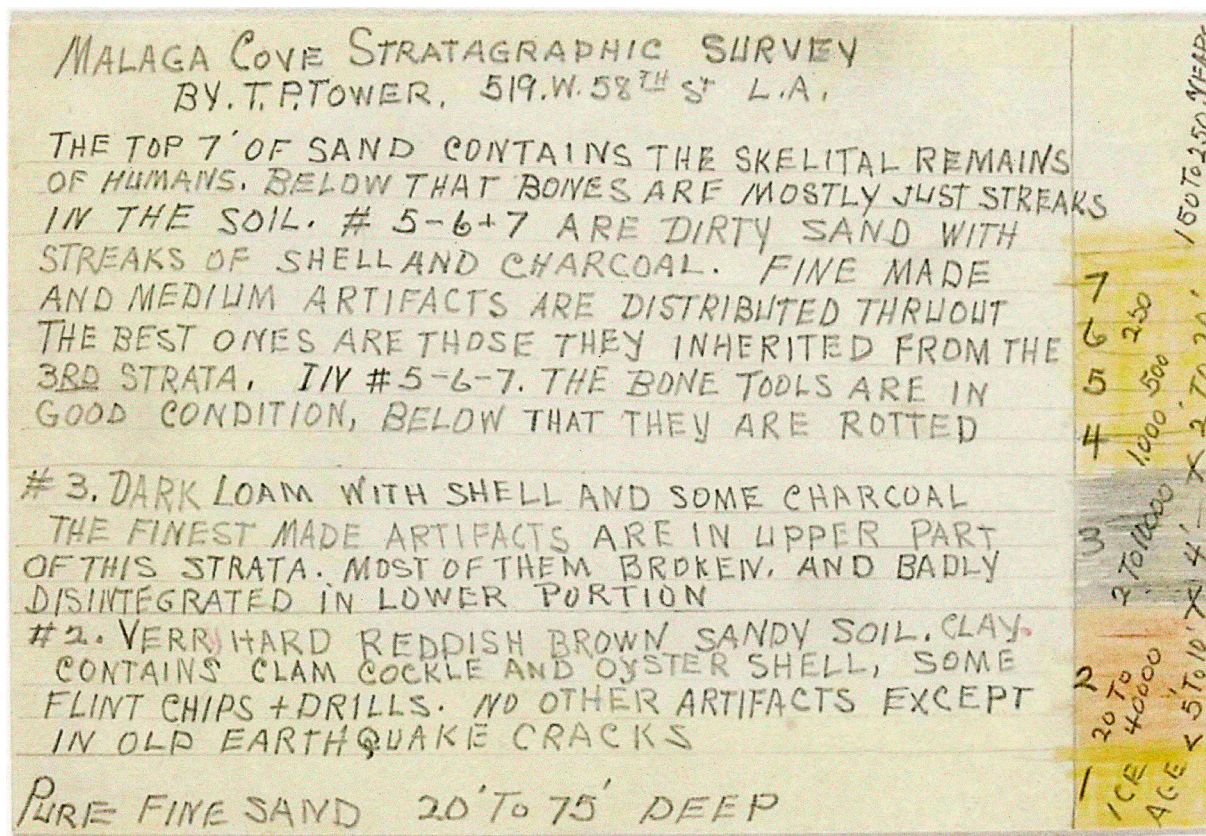 MALAGA COVE STRATAGRAPHIC SURVEY
BY. T. P. TOWER. 519. W. 58TH ST L.A.
THE TOP 7' OF SAND CONTAINS THE SKELITAL REMAINS
OF HUMANS. BELOW THAT BONES ARE MOSTLY JUST STREAKS
IN THE SOIL. # 5-6+7 ARE DIRTY SAND WITH
STREAKS OF SHELL AND CHARCOAL. FINE MADE
AND MEDIUM ARTIFACTS ARE DISTRIBUTED THRUOUT
THE BEST ONES ARE THOSE THEY INHERITED FROM THE
3RD STRATA. IN #5-6-7. THE BONE TOOLS ARE IN
GOOD CONDITION, BELOW THAT THEY ARE ROTTED
#3. DARK LOAM WITH SHELL AND SOME CHARCOAL
THE FINEST MADE ARTIFACTS ARE IN UPPER PART
OF THIS STRATA. MOST OF THEM BROKEN. AND BADLY
DISINTEGRATED IN LOWER PORTION
#2. VERRY HARD REDDISH BROWN SANDY SOIL. CLAY.
CONTAINS CLAM COCKLE AND OYSTER SHELL, SOME
FLINT CHIPS + DRILLS. NO OTHER ARTIFACTS EXCEPT
IN OLD EARTHQUAKE CRACKS
PURE FINE SAND 20' TO 75' DEEP
7
6
5
4
3
2
1
150 TO 250 YEARS
250
500
1,000
2 TO 10000
20 TO
40000
ICE
AGE
5' TO 10' X 4' X 2' TO 20'